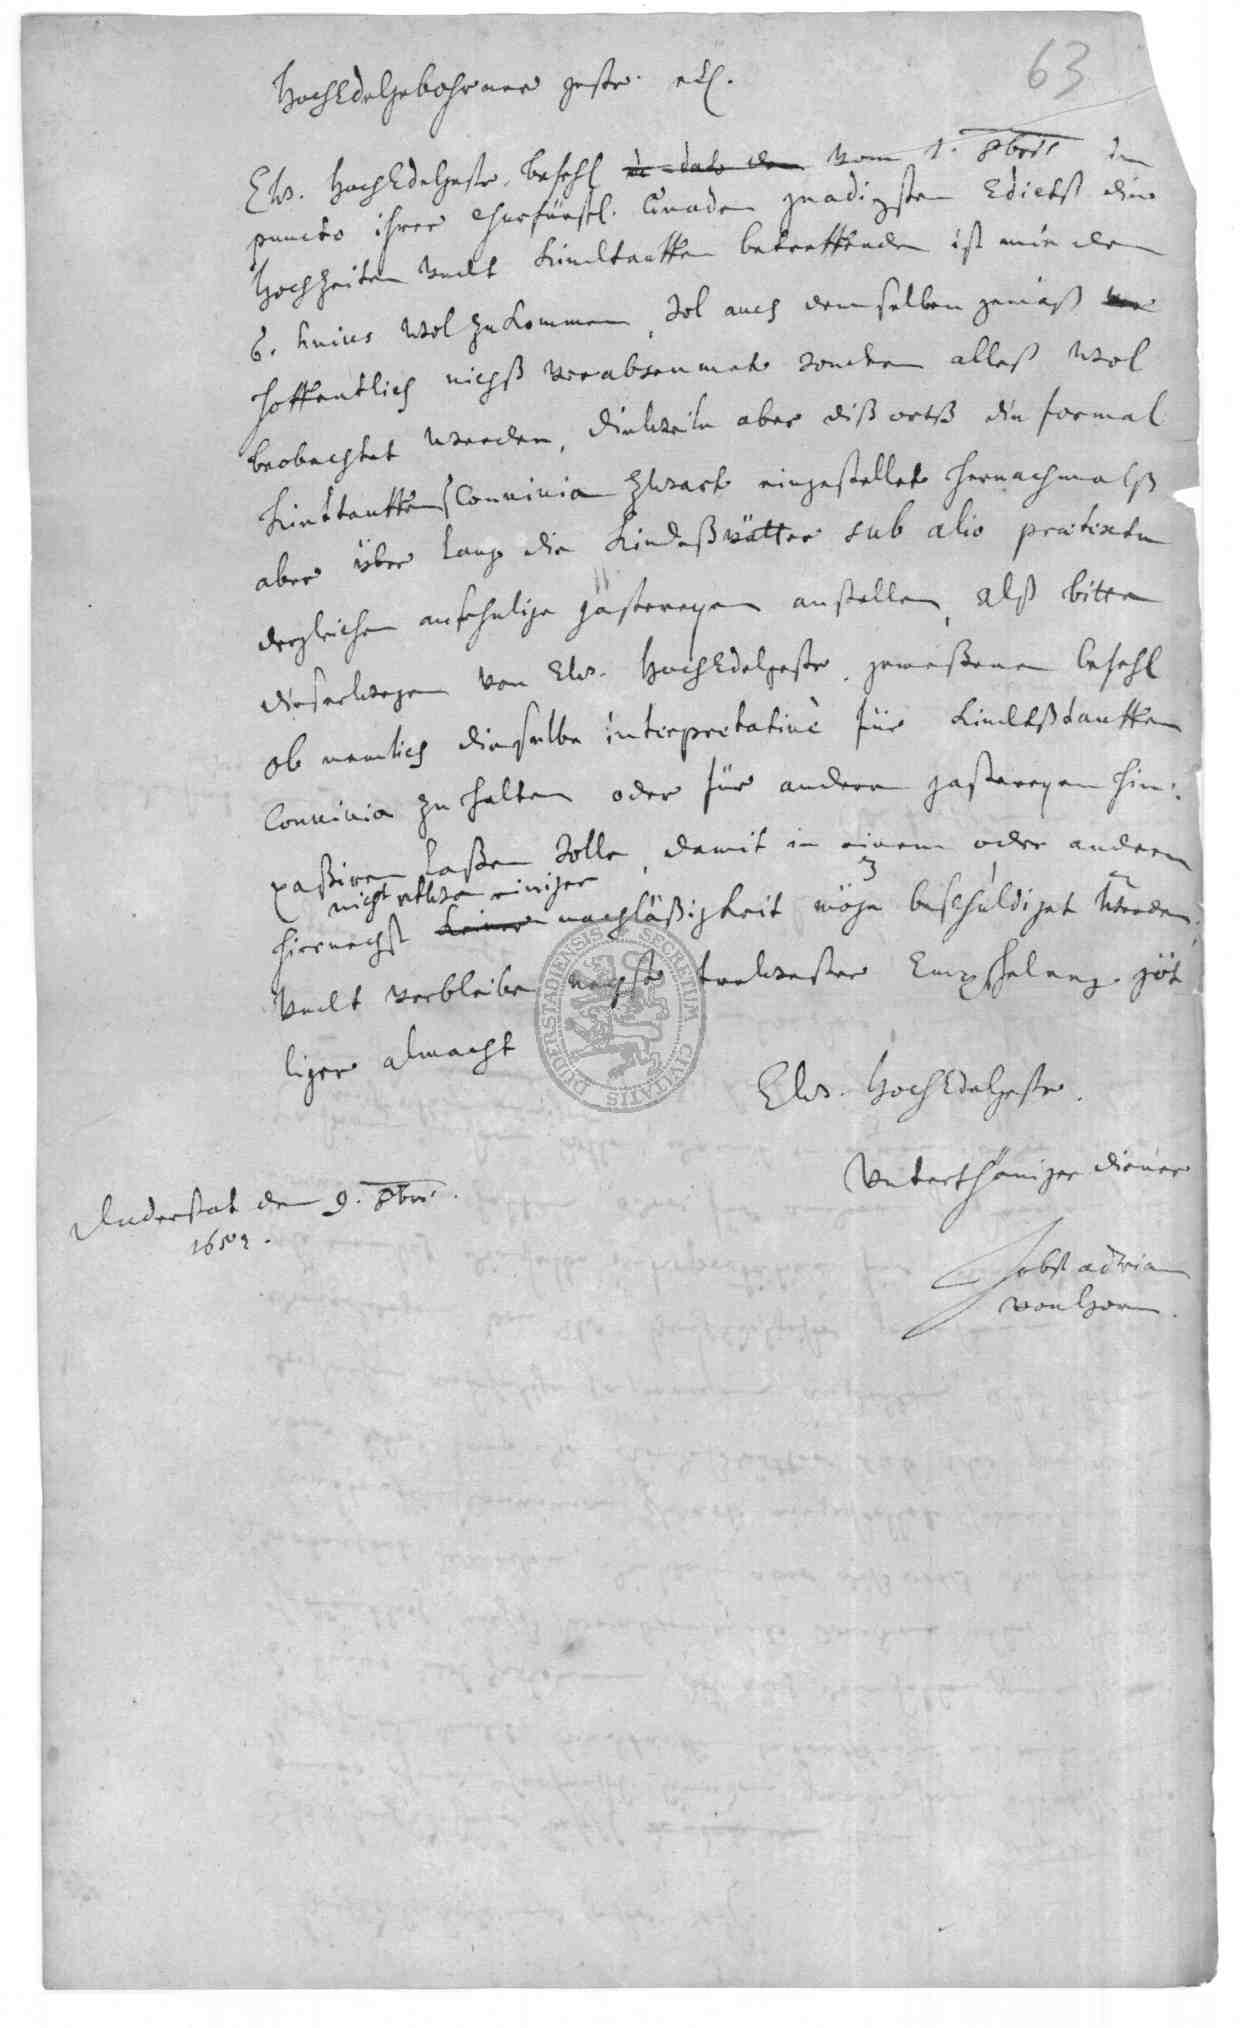 63
HochEdelgebohrner gestr. etc.
Ew. HochEdelgestr. befehl de dato den vom 1. 8bris in
puncto ihrer Churfürstl. Gnaden gnädigsten Edictß die
Hochzeiten undt Kindtauffen betreffenden ist mir den
6. huius wol zukommen, sol auch demselben gemäß
hoffentlich nichß verabseumet sondern alleß wol
beobachtet werden, dieweile aber diß ortß die formal
Kindtauffenß Convivia zwart eingestellet hernachmalß
aber über lang die Kindeßvätter sub alio prætextu
dergleichen ansehnlige gästereyen anstellen, alß bitte
dieserwegen von Ew. HochEdelgestr. gemeßenen befehl
ob nemlich dieselbe interpretativè für Kindtßtauffen
Convivia zu halten oder für andere gastereyen hin:
paßiren laßen solle, damit in einem oder andern
nicht etwa einiger
hiernechst keiner nachläßigkeit möge beschuldiget werden,
undt verbleibe negst trewester Empfhelung göt
liger almacht
Ew. HochEdelgestr.
Unterthäniger diener
Jobst adrian
von Horn
Duderstat den 9. 8bris.
1652.
DUDERSTADIENSIS SECRETUM CIVITATIS